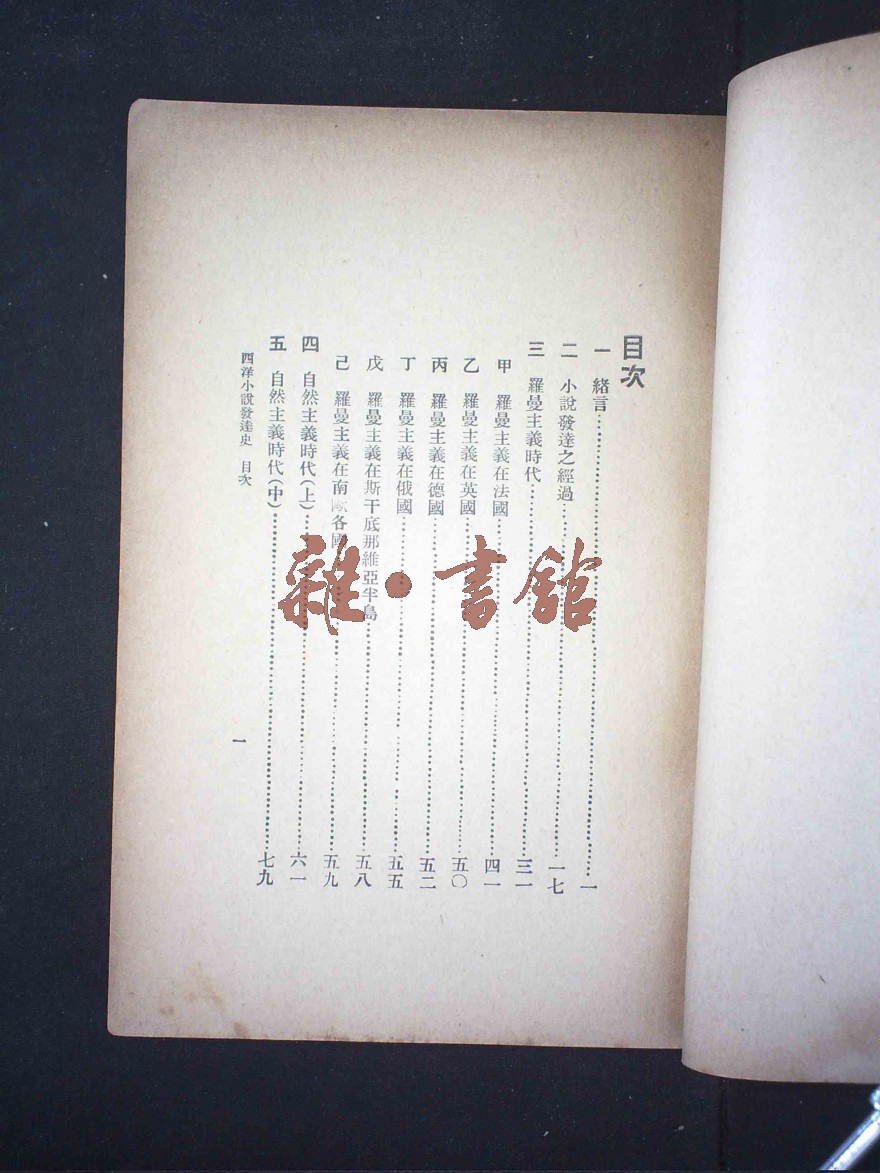 目次
一　緒言……一
二　小說發達之經過……一七
三　羅曼主義時代……三一
甲　羅曼主義在法國……四一
乙　羅曼主義在英國……五〇
丙　羅曼主義在德國……五二
丁　羅曼主義在俄國……五五
戊　羅曼主義在斯干底那維亞半島……五八
己　羅曼主義在南歐各國……五九
四　自然主義時代（上）……六一
五　自然主義時代（中）……七九
西洋小說發達史　目次
一
雜·書館